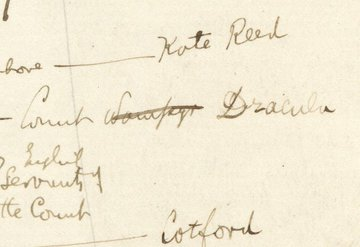 above — Kate Reed
— Count Wampyr Dracula
English
Servants of
the Count
— Cotford